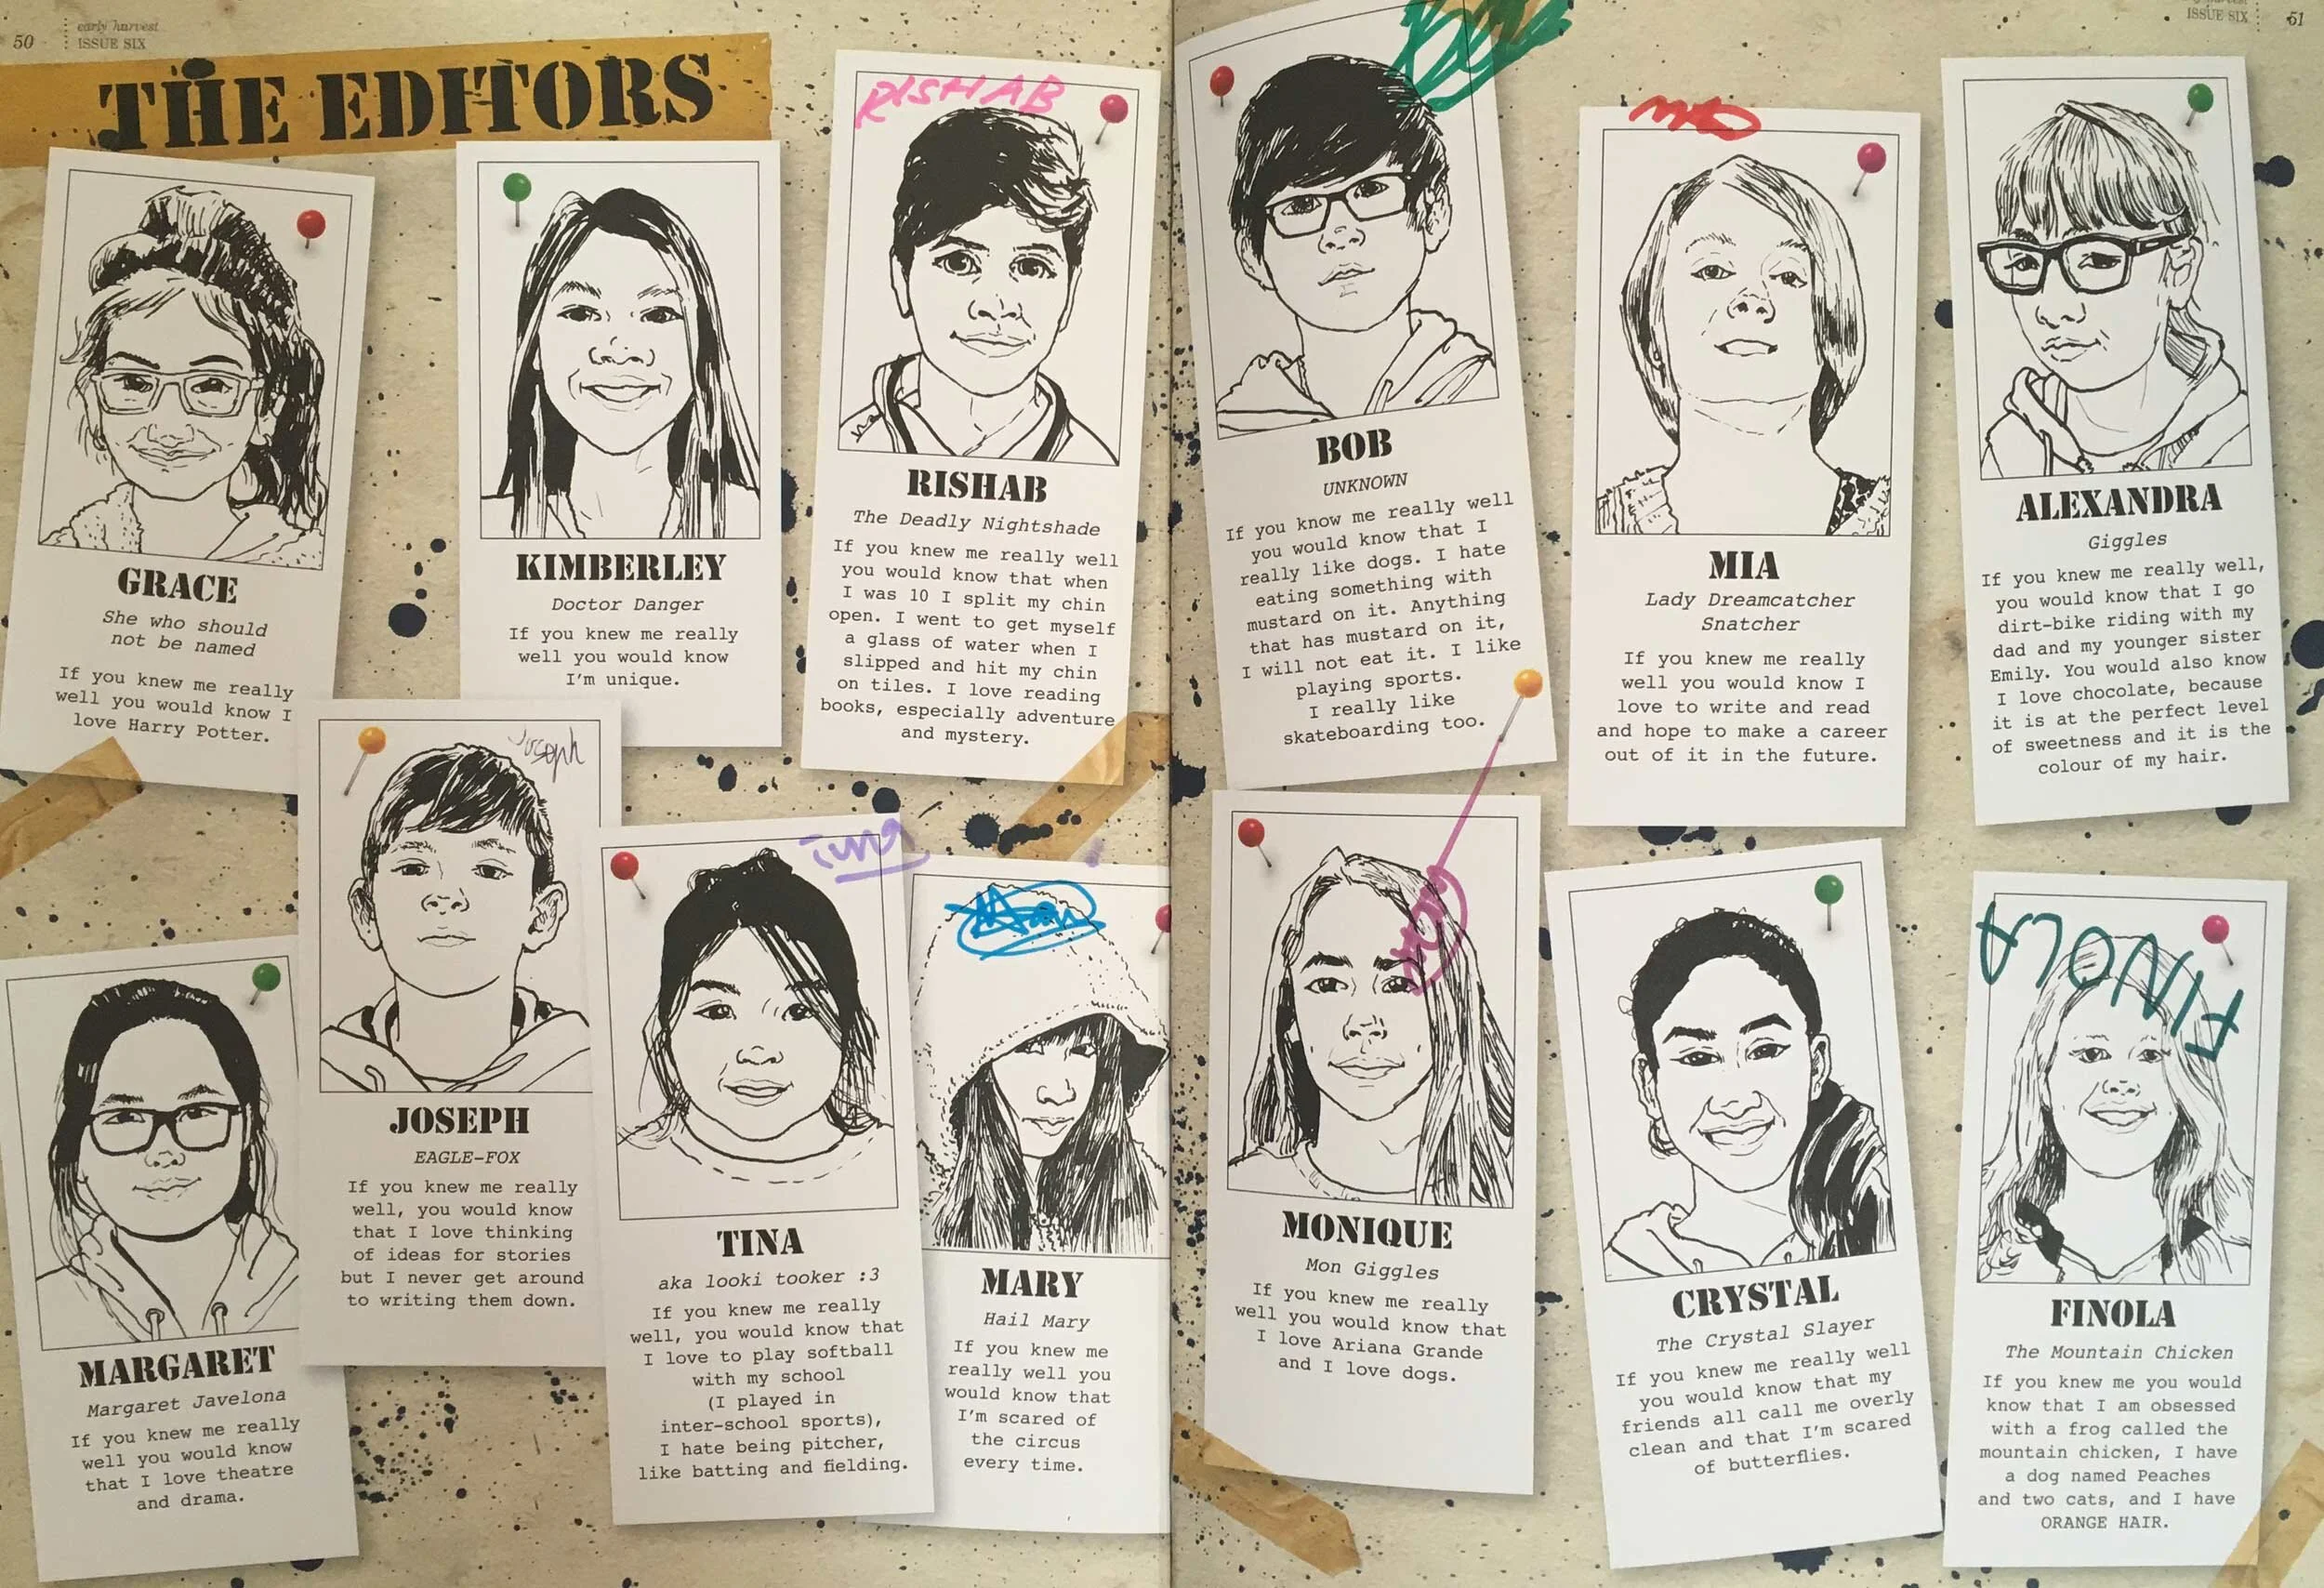 50
early harvest
ISSUE SIX
ISSUE SIX
51
THE EDITORS
GRACE
She who should
not be named
If you knew me really
well you would know I
love Harry Potter.
KIMBERLEY
Doctor Danger
If you knew me really
well you would know
I'm unique.
RISHAB
RISHAB
The Deadly Nightshade
If you knew me really well
you would know that when
I was 10 I split my chin
open. I went to get myself
a glass of water when I
slipped and hit my chin
on tiles. I love reading
books, especially adventure
and mystery.
BOB
UNKNOWN
If you know me really well
you would know that I
really like dogs. I hate
eating something with
mustard on it. Anything
that has mustard on it,
I will not eat it. I like
playing sports.
I really like
skateboarding too.
MIA
Lady Dreamcatcher
Snatcher
If you knew me really
well you would know I
love to write and read
and hope to make a career
out of it in the future.
ALEXANDRA
Giggles
If you knew me really well,
you would know that I go
dirt-bike riding with my
dad and my younger sister
Emily. You would also know
I love chocolate, because
it is at the perfect level
of sweetness and it is the
colour of my hair.
MARGARET
Margaret Javelona
If you knew me really
well you would know
that I love theatre
and drama.
Joseph
JOSEPH
EAGLE-FOX
If you knew me really
well, you would know
that I love thinking
of ideas for stories
but I never get around
to writing them down.
Tina
TINA
aka looki tooker :3
If you knew me really
well, you would know that
I love to play softball
with my school
(I played in
inter-school sports),
I hate being pitcher,
like batting and fielding.
MARY
Hail Mary
If you knew me
really well you
would know that
I'm scared of
the circus
every time.
MONIQUE
Mon Giggles
If you knew me really
well you would know that
I love Ariana Grande
and I love dogs.
CRYSTAL
The Crystal Slayer
If you knew me really well
you would know that my
friends all call me overly
clean and that I'm scared
of butterflies.
FINOLA
FINOLA
The Mountain Chicken
If you knew me you would
know that I am obsessed
with a frog called the
mountain chicken, I have
a dog named Peaches
and two cats, and I have
ORANGE HAIR.